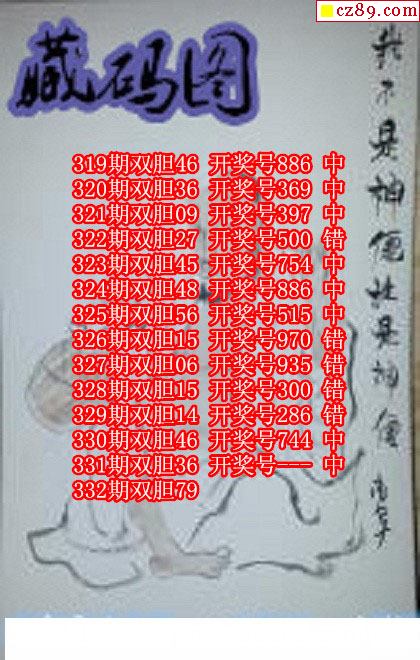 cz89.com
藏码图
319期双胆46 开奖号886 中
320期双胆36 开奖号369 中
321期双胆09 开奖号397 中
322期双胆27 开奖号500 错
323期双胆45 开奖号754 中
324期双胆48 开奖号886 中
325期双胆56 开奖号515 中
326期双胆15 开奖号970 错
327期双胆06 开奖号935 错
328期双胆15 开奖号300 错
329期双胆14 开奖号286 错
330期双胆46 开奖号744 中
331期双胆36 开奖号--- 中
332期双胆79
我不是神
是神